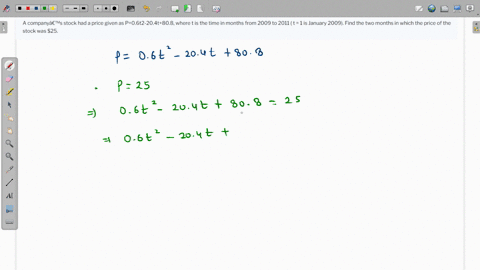 A companyâ€™s stock had a price given as P=0.6t2-20.4t+80.8, where t is the time in months from 2009 to 2011 (t = 1 is January 2009). Find the two months in which the price of the
stock was $25.
P = 0.6t² - 20.4t + 80.8
. P = 25
⇒) 0.6t² - 20.4t + 80.8 = 25
⇒ 0.6t² - 20.4t +